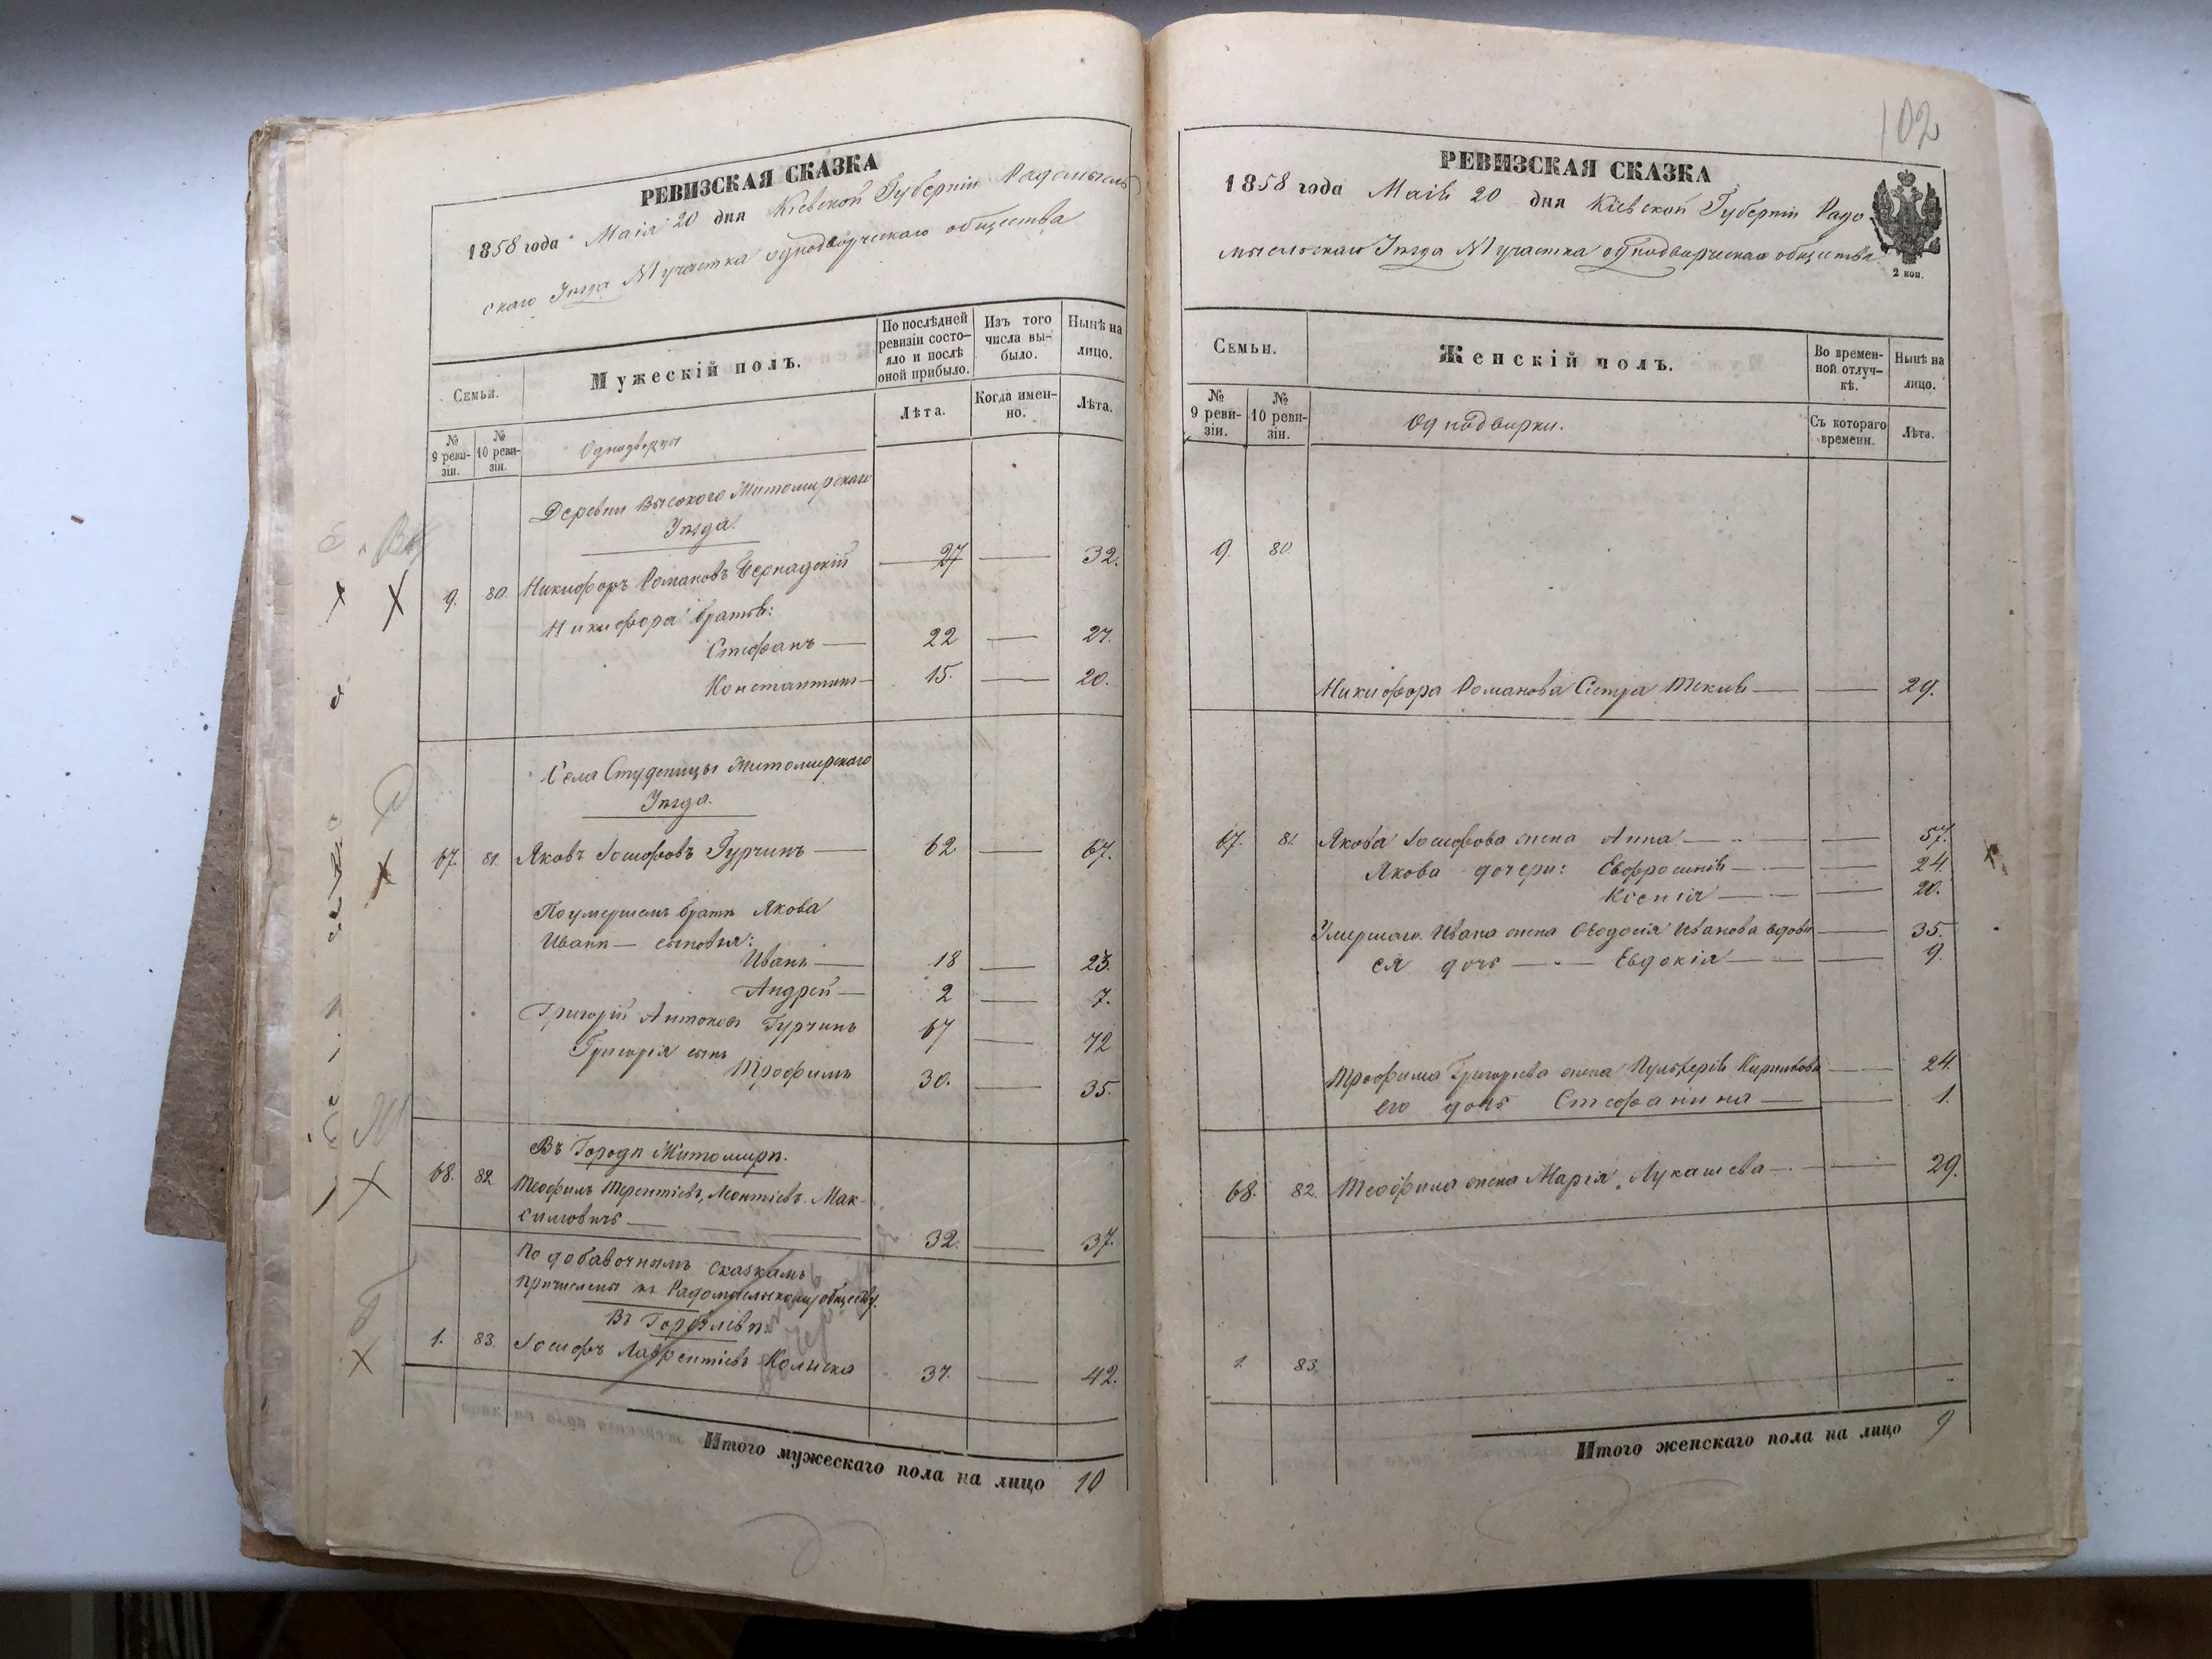 РЕВИЗСКАЯ СКАЗКА
1858 года Маія 20 дня Кіевской Губерніи Радомысль
скаго Уѣзда участка однодворческаго общества
Семьи.
Мужескій полъ.
По послѣдней ревизіи состояло и послѣ оной прибыло.
Изъ того числа выбыло.
Нынѣ на лицо.
№ 9 ревизіи.
№ 10 ревизіи.
Однодворцы
Лѣта.
Когда именно.
Лѣта.
Деревни Высокого Житомирскаго
Уѣзда.
9. 80. Никифоръ Романовъ Бернадскій 27 — 32.
Никифора братья:
Стефанъ — 22 — 27.
Константинъ — 15. — 20.
Села Студеницы Житомирскаго
Уѣзда.
67. 81. Яковъ Іосифовъ Гурчинъ — 62 — 67.
По умершемъ братѣ Якова
Иванѣ — сыновья:
Иванъ — 18 — 23.
Андрей — 2 — 7.
Григорій Антоновъ Гурчинъ 67 — 72
Григорія сынъ
Трофимъ 30. — 35.
Въ Городѣ Житомирѣ.
68. 82 Теофилъ Терентіевъ, Леонтіевъ. Мак-
симовичъ — 32. — 37.
По добавочнымъ сказкамъ
причислены къ Радомысльскому обществу.
Въ
1. 83. Іосифъ Лаврентіевъ Колычка 37. — 42.
Итого мужескаго пола на лицо 10
102
РЕВИЗСКАЯ СКАЗКА
1858 года Маія 20 дня Кіевской Губерніи Радо
мысльскаго Уѣзда участка однодворческаго общества
2 коп.
Семьи.
Женскій полъ.
Во временной отлучкѣ.
Нынѣ на лицо.
№ 9 ревизіи.
№ 10 ревизіи.
Однодворки.
Съ котораго времени.
Лѣта.
9. 80.
Никифора Романова Сестра Текля — — 29.
67. 81. Якова Іосифова жена Анна — — 57.
Якова дочери: Евфросинія — — 24.
Ксенія — — 20.
Умершаго Ивана жена Ѳеодосія Иванова вдова — 35.
ея дочь — Евдокія — — 9.
Трофима Григорьева жена Пульхерія Кирилова — 24.
его дочь Стефанина — — 1.
68. 82. Теофила жена Марія Лукашева — — 29.
1. 83.
Итого женскаго пола на лицо 9